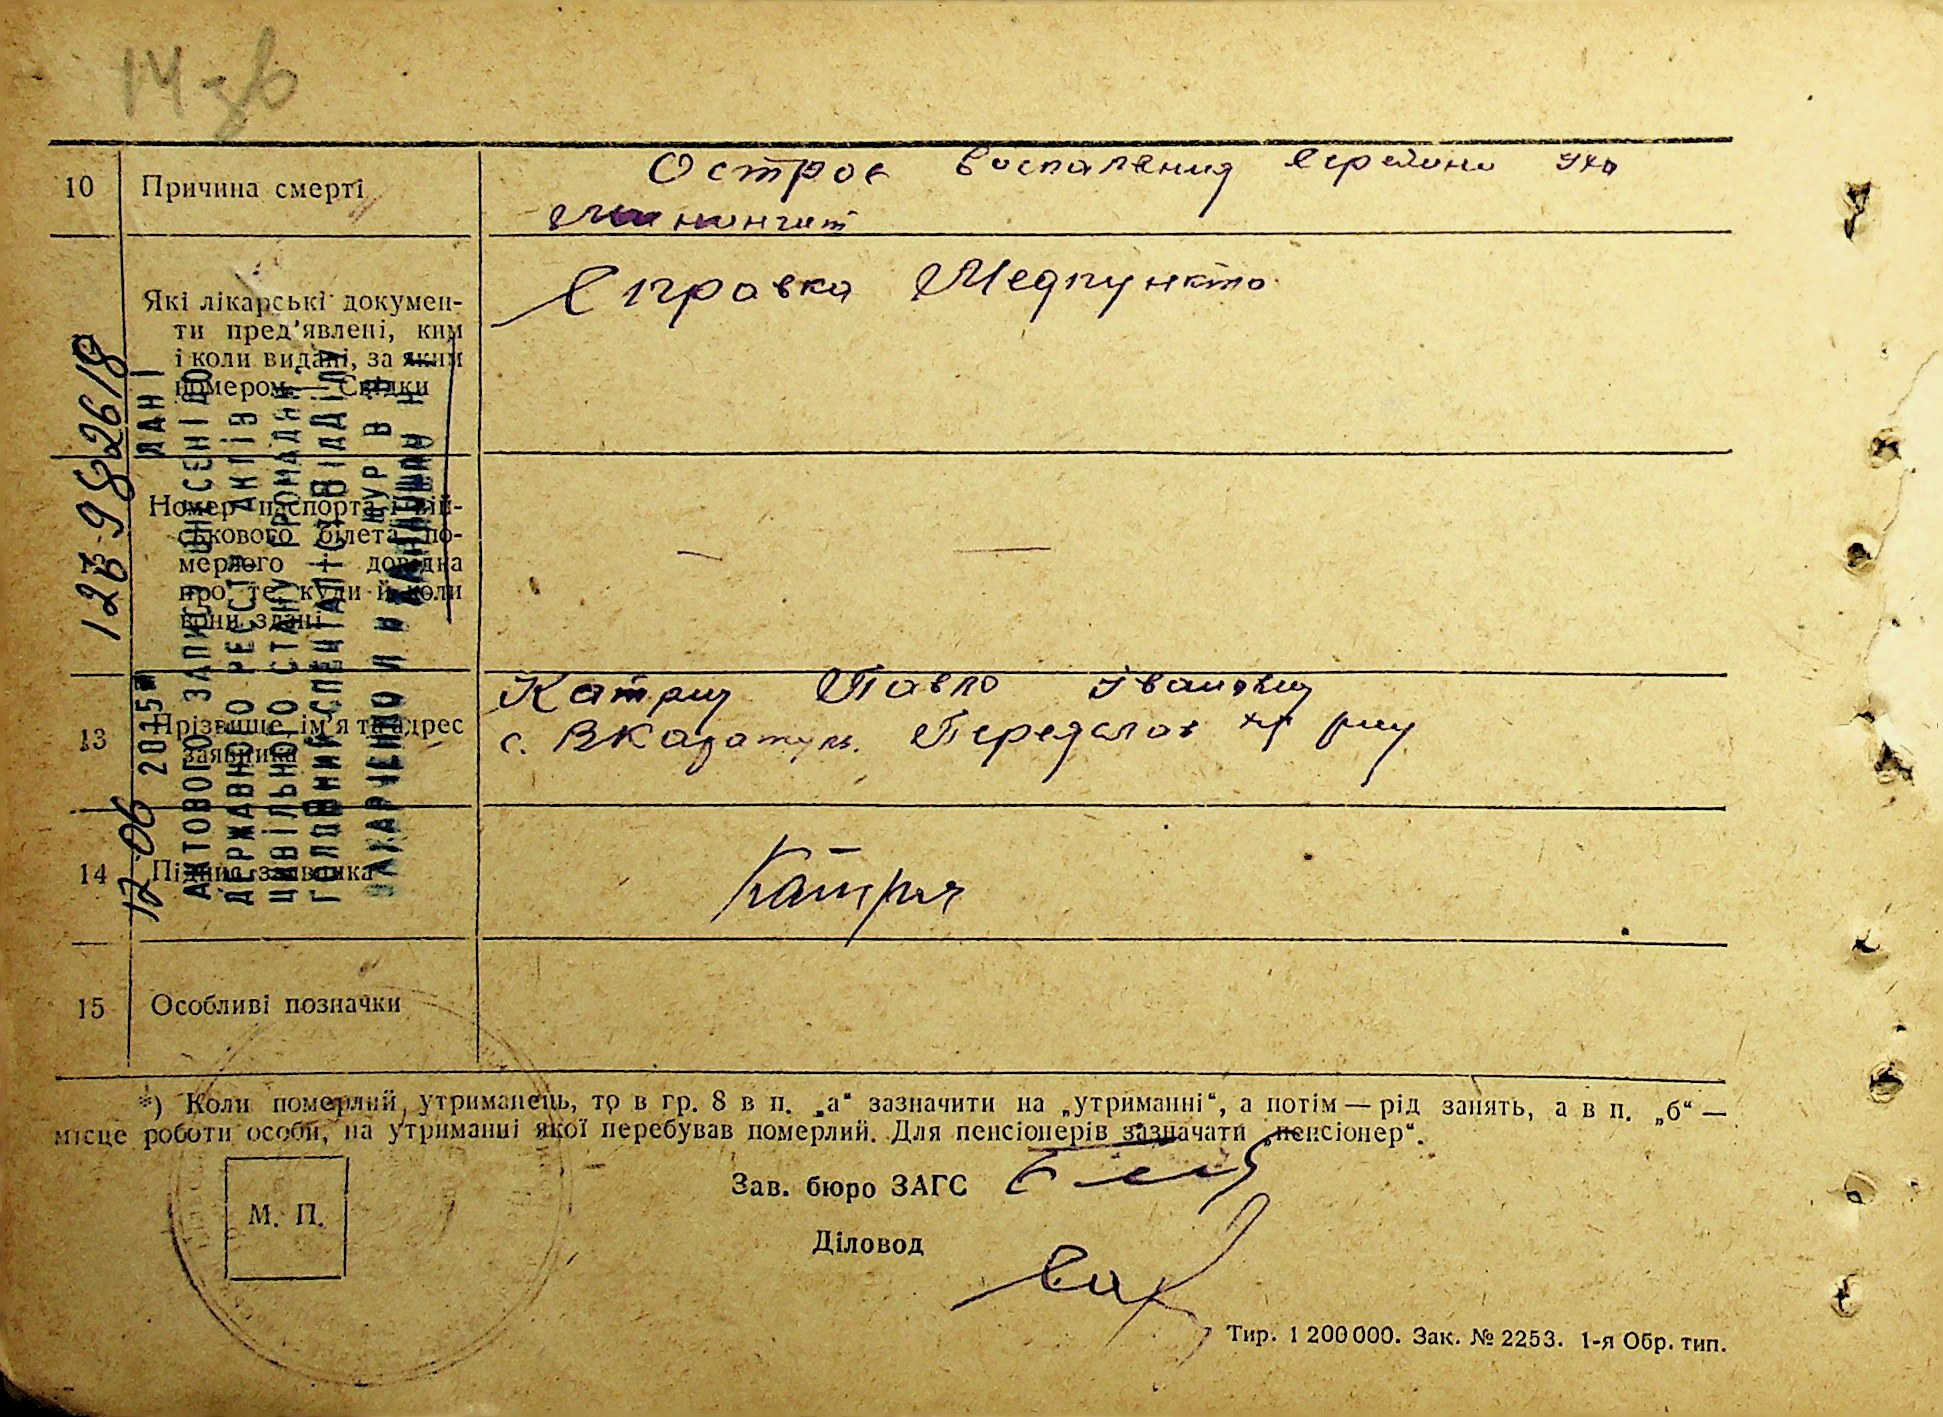 14 зв
10 Причина смерті Острое воспаления середино уха
Минингит
Які лікарські докумен-
ти пред'явлені, ким
і коли видані, за яким
номером. — Свідки
Справка Медпункта
12 Номер паспорта і вій-
ськового білета по-
мерлого і довідка
про те, куди й коли
вони здані — —
13 Прізвище, ім'я та адрес
заявника
Катрич Павло Іванович
с. В Каратуль Переяслов
14 Підпис заявника
15 Особливі позначки
*) Коли померлий утриманець, то в гр. 8 в п. „а" зазначити на „утриманні", а потім — рід занять, а в п. „б" —
місце роботи особи, на утриманні якої перебував померлий. Для пенсіонерів зазначати „пенсіонер".
Зав. бюро ЗАГС
М. П.
Діловод
Тир. 1 200 000. Зак. № 2253. 1-я Обр. тип.
ДАНІ
АКТОВОГО ЗАПИСУ ВНЕСЕНІ ДО
ДЕРЖАВНОГО РЕЄСТРУ АКТІВ
ЦИВІЛЬНОГО СТАНУ ГРОМАДЯН
ГОЛОВНИЙ СПЕЦІАЛІСТ ВІДДІЛУ
12 06 2015